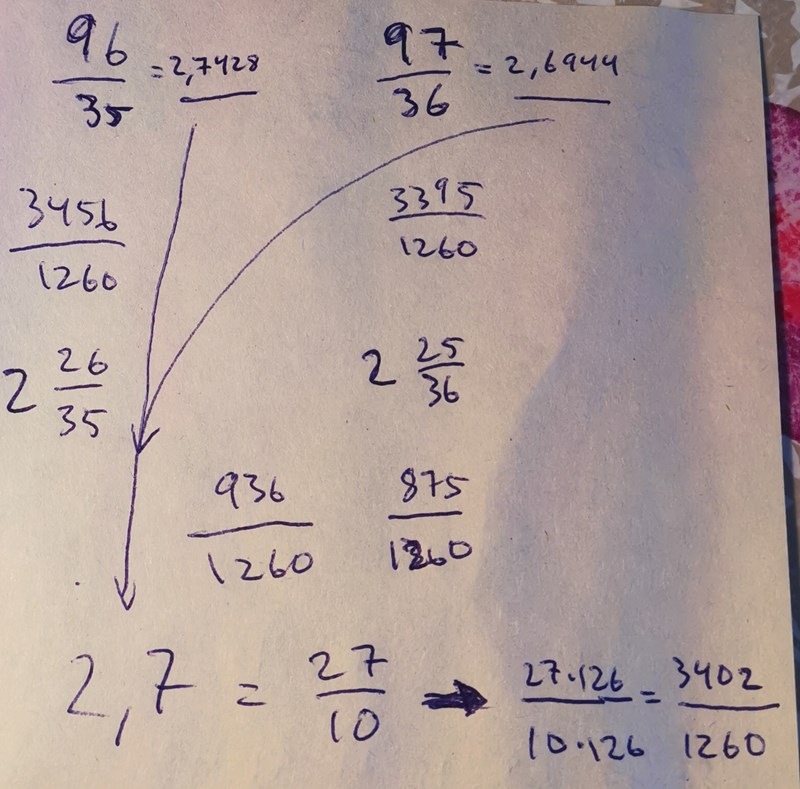 96/35 = 2,7428 97/36 = 2,6944
3456/1260 3395/1260
2 26/35 2 25/36
936/1260 875/1260
2,7 = 27/10 → 27·126/10·126 = 3402/1260